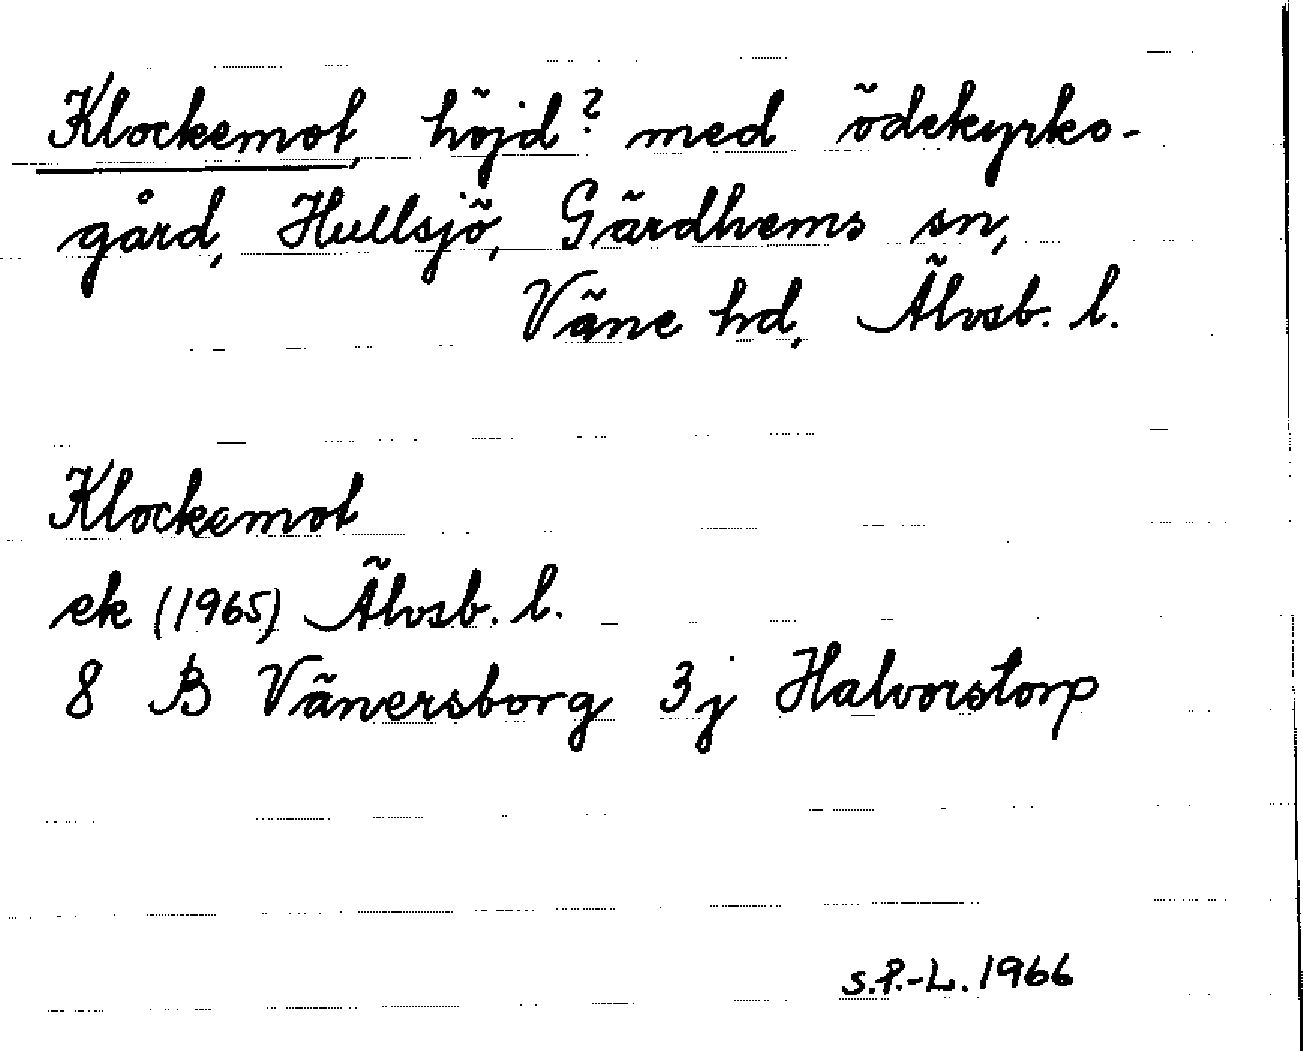 Klockemot, höjd? med ödekyrko-
gård, Hullsjö, Gärdhems sn,
Väne hd, Älvsb. l.
Klockemot
ek (1965) Älvsb. l.
8 B Vänersborg 3j Halvorstorp
S.P.-L. 1966